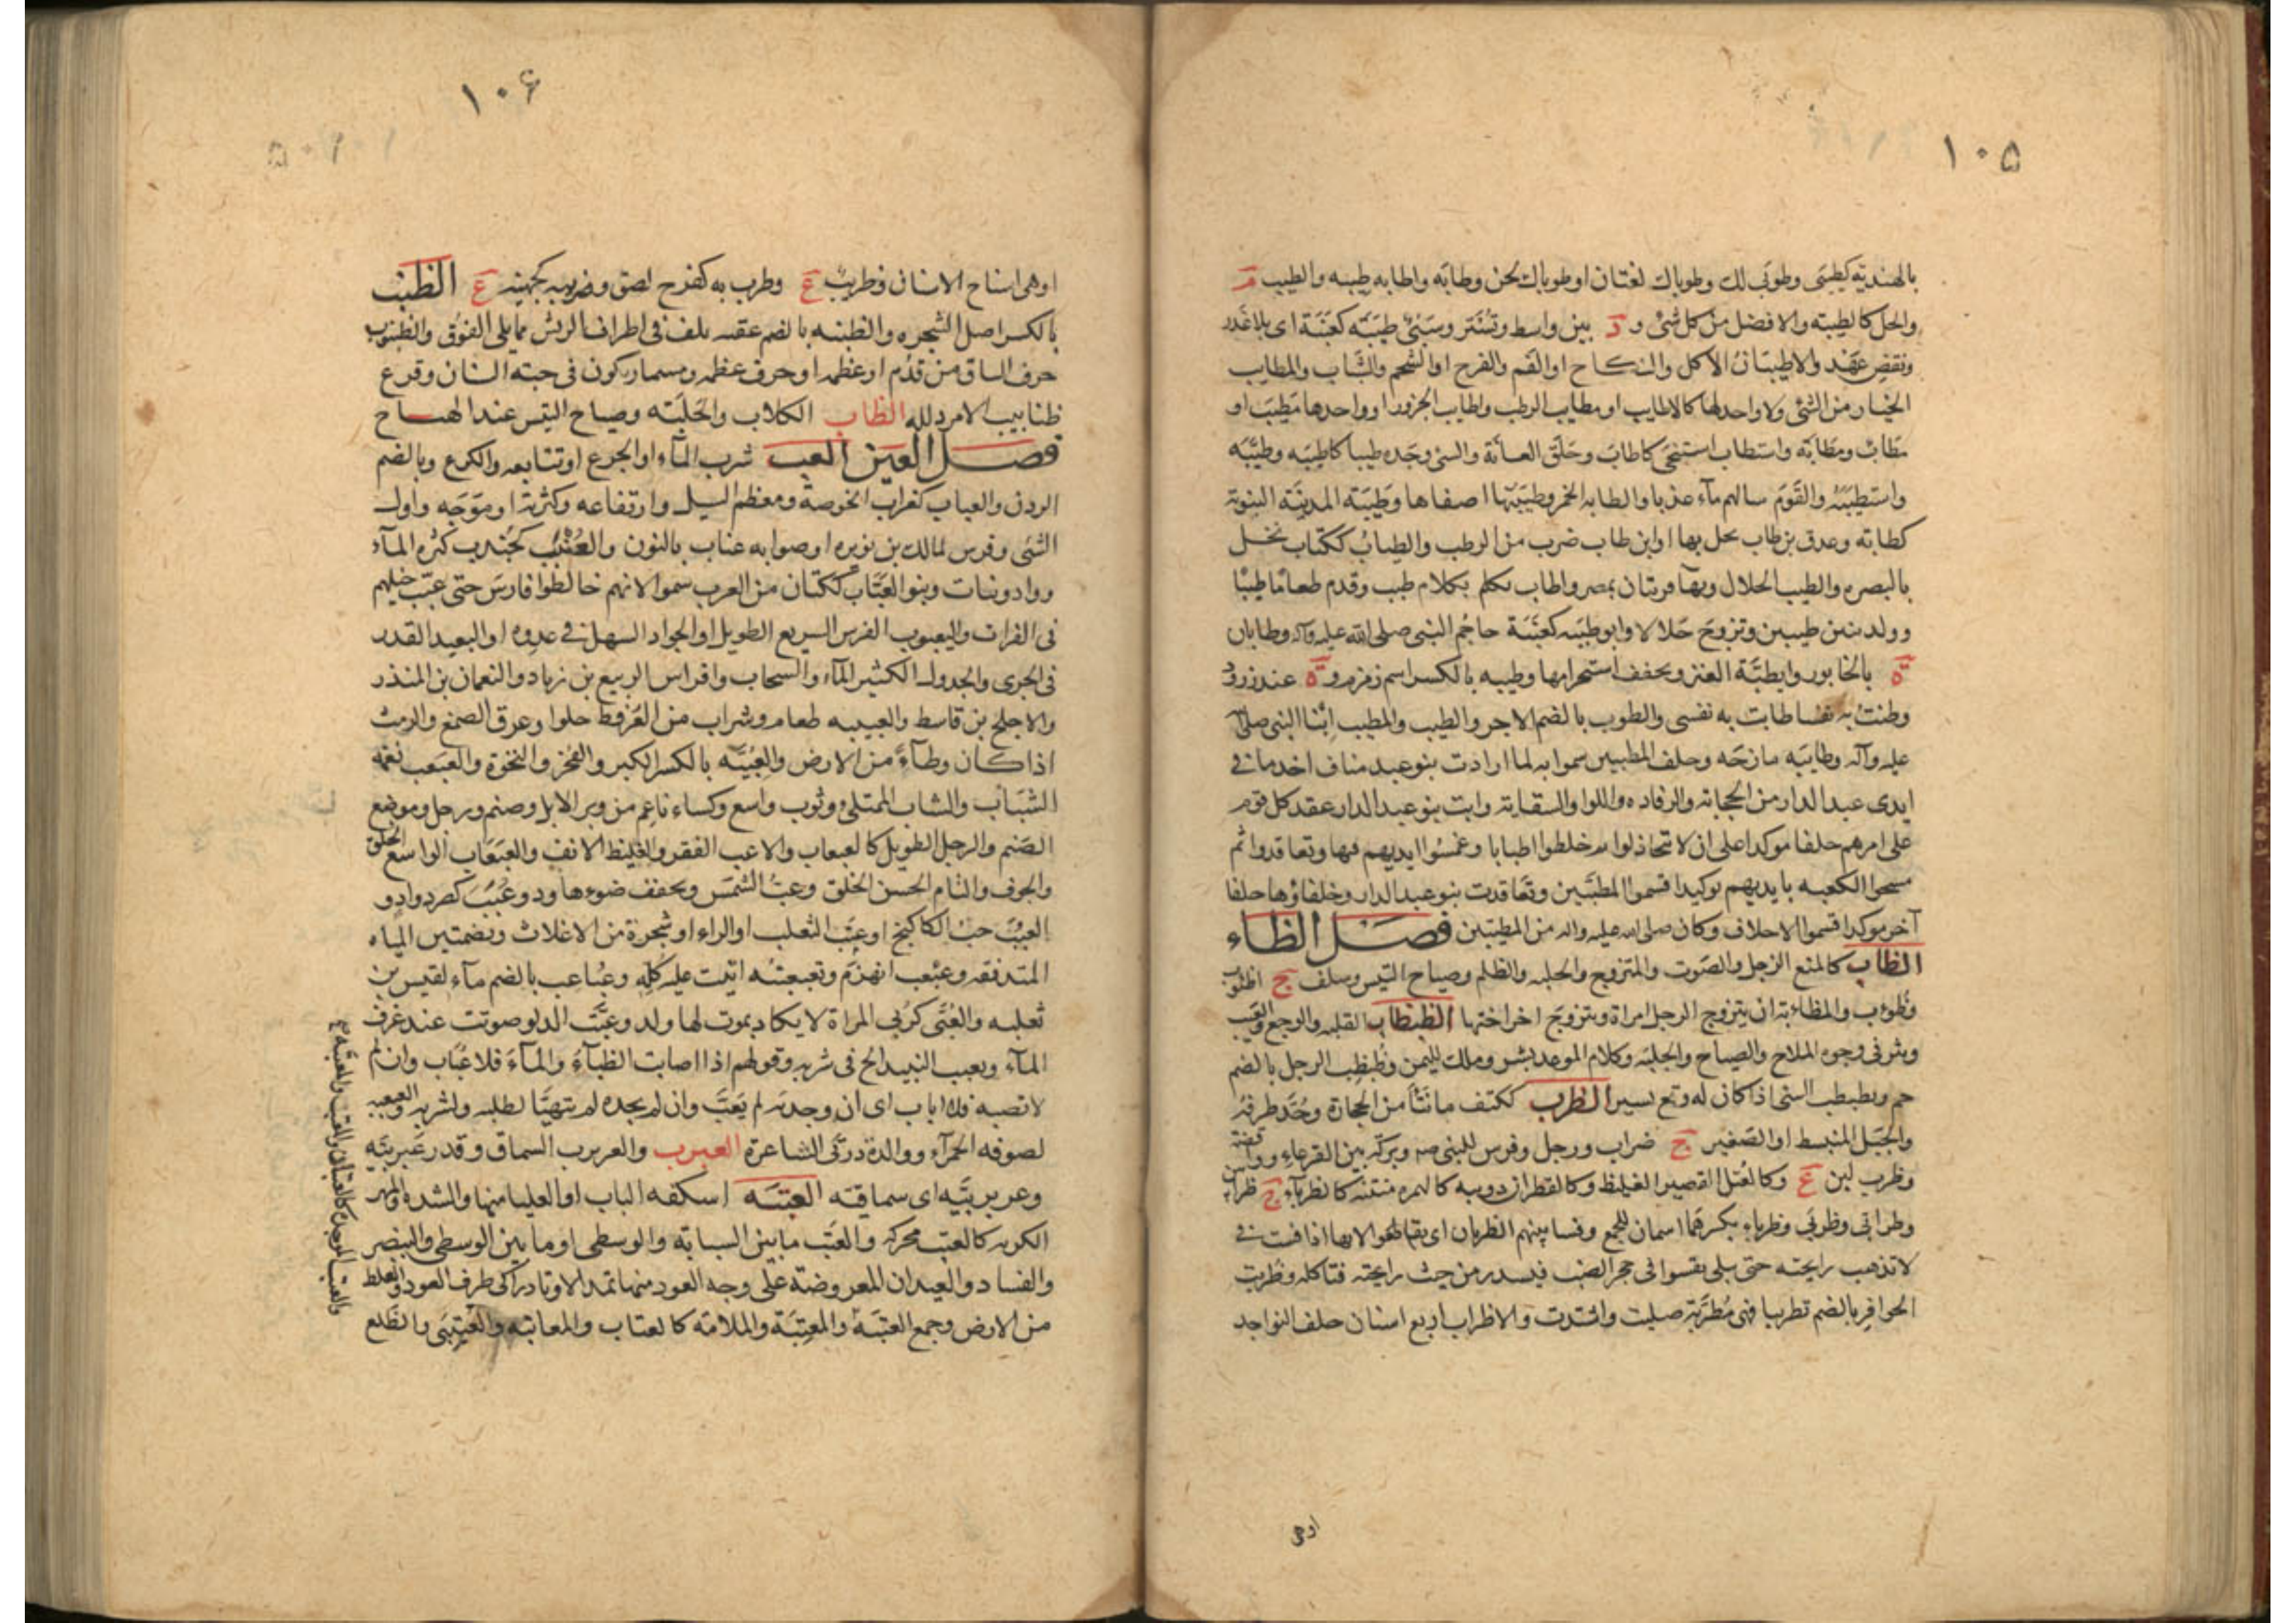 ١٠٥
بالهندية كطيبى وطوبى لك وطوباك لغتان او طوباك لحن وطابه واطابه طيبه والطيب م
والحل كالطيبه والافضل من كل شئ و د بين واسط وتستر وسبى طيبه كعنبة اى بلا غدر
ونقض عهد والاطيبان الاكل والنكاح او الفم والفرج او الشحم والشباب والمطايب
الخيار من الشئ ولا واحد لها كالاطايب او مطايب الرطب واطايب الجزور او واحدها مطيب او
مطاب ومطابة واستطاب استنجى كاطاب وحلق العانة والشئ وجده طيبا كاطيبه وطيبه
واستطيبه والقوم سالهم ماء عذبا والطابه الخمر وطيبتها اصفاها وطيبة المدينة النبوية
كطابة وعذق بن طاب نخل بها او ابن طاب ضرب من الرطب والطياب ككتاب نخل
بالبصره والطيب الحلال وبهاء قريتان بمصر واطاب تكلم بكلام طيب وقدم طعاما طيبا
وولد بنين طيبين وتزوج حلالا وابو طيبه كعنبة حاجم النبى صلى الله عليه وآله وطابان
ة بالخابور وايطبة العنز ويخفف استحرامها وطيبه بالكسر اسم زمزم و ة عند زرود
وطبت به نفسا طابت به نفسى والطوب بالضم الاجر والطيب والمطيب ابنا النبى صلى
عليه وآله وطايبه مازحه وحلف المطيبين سموا به لما ارادت بنو عبد مناف اخذ ما فى
ايدى عبد الدار من الحجابة والرفاده واللوا والسقاية وابت بنو عبد الدار عقد كل قوم
على امرهم حلفا موكدا على ان لا تتخاذلوا ثم خلطوا اطيابا وغمسوا ايديهم فيها وتعاقدوا ثم
مسحوا الكعبه بايديهم توكيدا فسموا المطيبين وتعاقدت بنو عبد الدار وخلفاؤها حلفا
آخر موكدا فسموا الاحلاف وكان صلى الله عليه واله من المطيبين فصل الظاء
الظاب كالمنع الزجل والصوت والمتزوج والجلبه والظلم وصياح التيس وسلف ج اظؤب
وظؤوب والمظاءبة ان يتزوج الرجل امراة ويتزوج اخر اختها الظبظاب القلبه والوجع والعيب
وبثر فى وجوه الملاح والصياح والجلبه وكلام الموعد بشر وملك لليمن وظبظب الرجل بالضم
حم وتظبظب الشئ اذا كان له وقع يسير الظرب ككتف ما نتأ من الحجارة وحد طرفه
والجبل المنبسط او الصغير ج ضراب ورجل وفرس للنبى صه وبركة بين القرعاء وواقصة
وظرب لبن ع وكالعتل القصير الغليظ وكالقطران دويبه كالهره منتنه كالظرباء ج ظرابين
وظرابى وظربى وظرباء بكسرهما اسمان للجمع وفسا بينهم الظربان اى تقاطعوا لانها اذا فست فى
لا تذهب رايحته حتى يبلى يفسوا فى جحر الضب فيسدر من خبث رايحته فتاكله وظربت
الحوافر بالضم تظريبا فهى مظربة صلبت واشتدت والاظراب اربع اسنان خلف النواجد
اوهى
١٠۶
او هى اسناخ الاسنان وظريب ع وظرب به كفرح لصق وضريبه كجهينه ع الظنب
بالكسر اصل الشجره والظنبه بالضم عقبه يلف فى اطراف الريش مما يلى الفوق والظنبوب
حرف الساق من قدم او عظمه او حرف عظمه ومسمار يكون فى جبته السنان وقرع
ظنابيب الامر ذلله الظاب الكلاب والجلبته وصياح التيس عند الهياج
فصل العين العب شرب المآء او الجرع او تتابعه والكرع وبالضم
الردن والعباب كغراب الخوصة ومعظم السيل وارتفاعه وكثرته او موجه واول
الشئ وفرس لمالك بن نويره او صوابه عناب بالنون والعنبب كجندب كثره المآء
وواد ونبات وبنو العباب ككتان من العرب سموا لانهم خالطوا فارس حتى عبت خيلهم
فى الفرات واليعبوب الفرس السريع الطويل او الجواد السهل فى عدوه او البعيد القدر
فى الجرى والجدول الكثير المآء والسحاب وافراس الربيع بن زياد والنعمان بن المنذر
والاجلح بن قاسط والعبيبه طعام وشراب من العرفط حلوا وعرق الصمغ والرمث
اذا كان وطآء من الارض والعبية بالكسر الكبر والفخر والنخوة والعبعب نعمة
الشباب والشاب الممتلئ وثوب واسع وكساء ناعم من وبر الابل وصنم ورجل وموضع
الصنم والرجل الطويل كالعبعاب والاعب الفقر والغليظ الانف والعبعاب الواسع الحلق
والجوف والتام الحسن الخلق وعب الشمس ويخفف ضوءها وذو عبب كصرد واد و
العبب حب الكاكنج او عنب الثعلب او الراء او شجرة من الاغلاث وبضمتين المياه
المتدفقه وعبعب انهزم وتعبعبته اتيت عليه كله وعباعب بالضم مآء لقيس بن
ثعلبه والعبى كربى المراة لا يكاد يموت لها ولد وعبت الدلو صوتت عند غرف
المآء وتعبب النبيذ الح فى شربه وقولهم اذا اصابت الظبآء والمآء فلا عباب وان لم
لا تصبه فلا اباب اى ان وجدته لم تعب وان لم يجده لم تتهيا لطلبه ولشربه والعبعبه
لصوفه الحمرآء ووالدة درنى الشاعرة العبرب والعربرب السماق وقدر عبربيه
وعربربيه اى سماقية العتبه اسكفه الباب او العليا منها والشده والامر
الكريه كالعتب محركه والعتب ما بين السبابة والوسطى او ما بين الوسطى والبنصر
والفساد والعيدان المعروضة على وجه العود منها تمد الاوتار الى طرف العود والغلظ
من الارض وجمع العتبه والمعتبة والملامة كالعتاب والمعاتبه والعتيبى والظلع
والعتب الموجدة كالعتبان والمعتب والمعتبة م